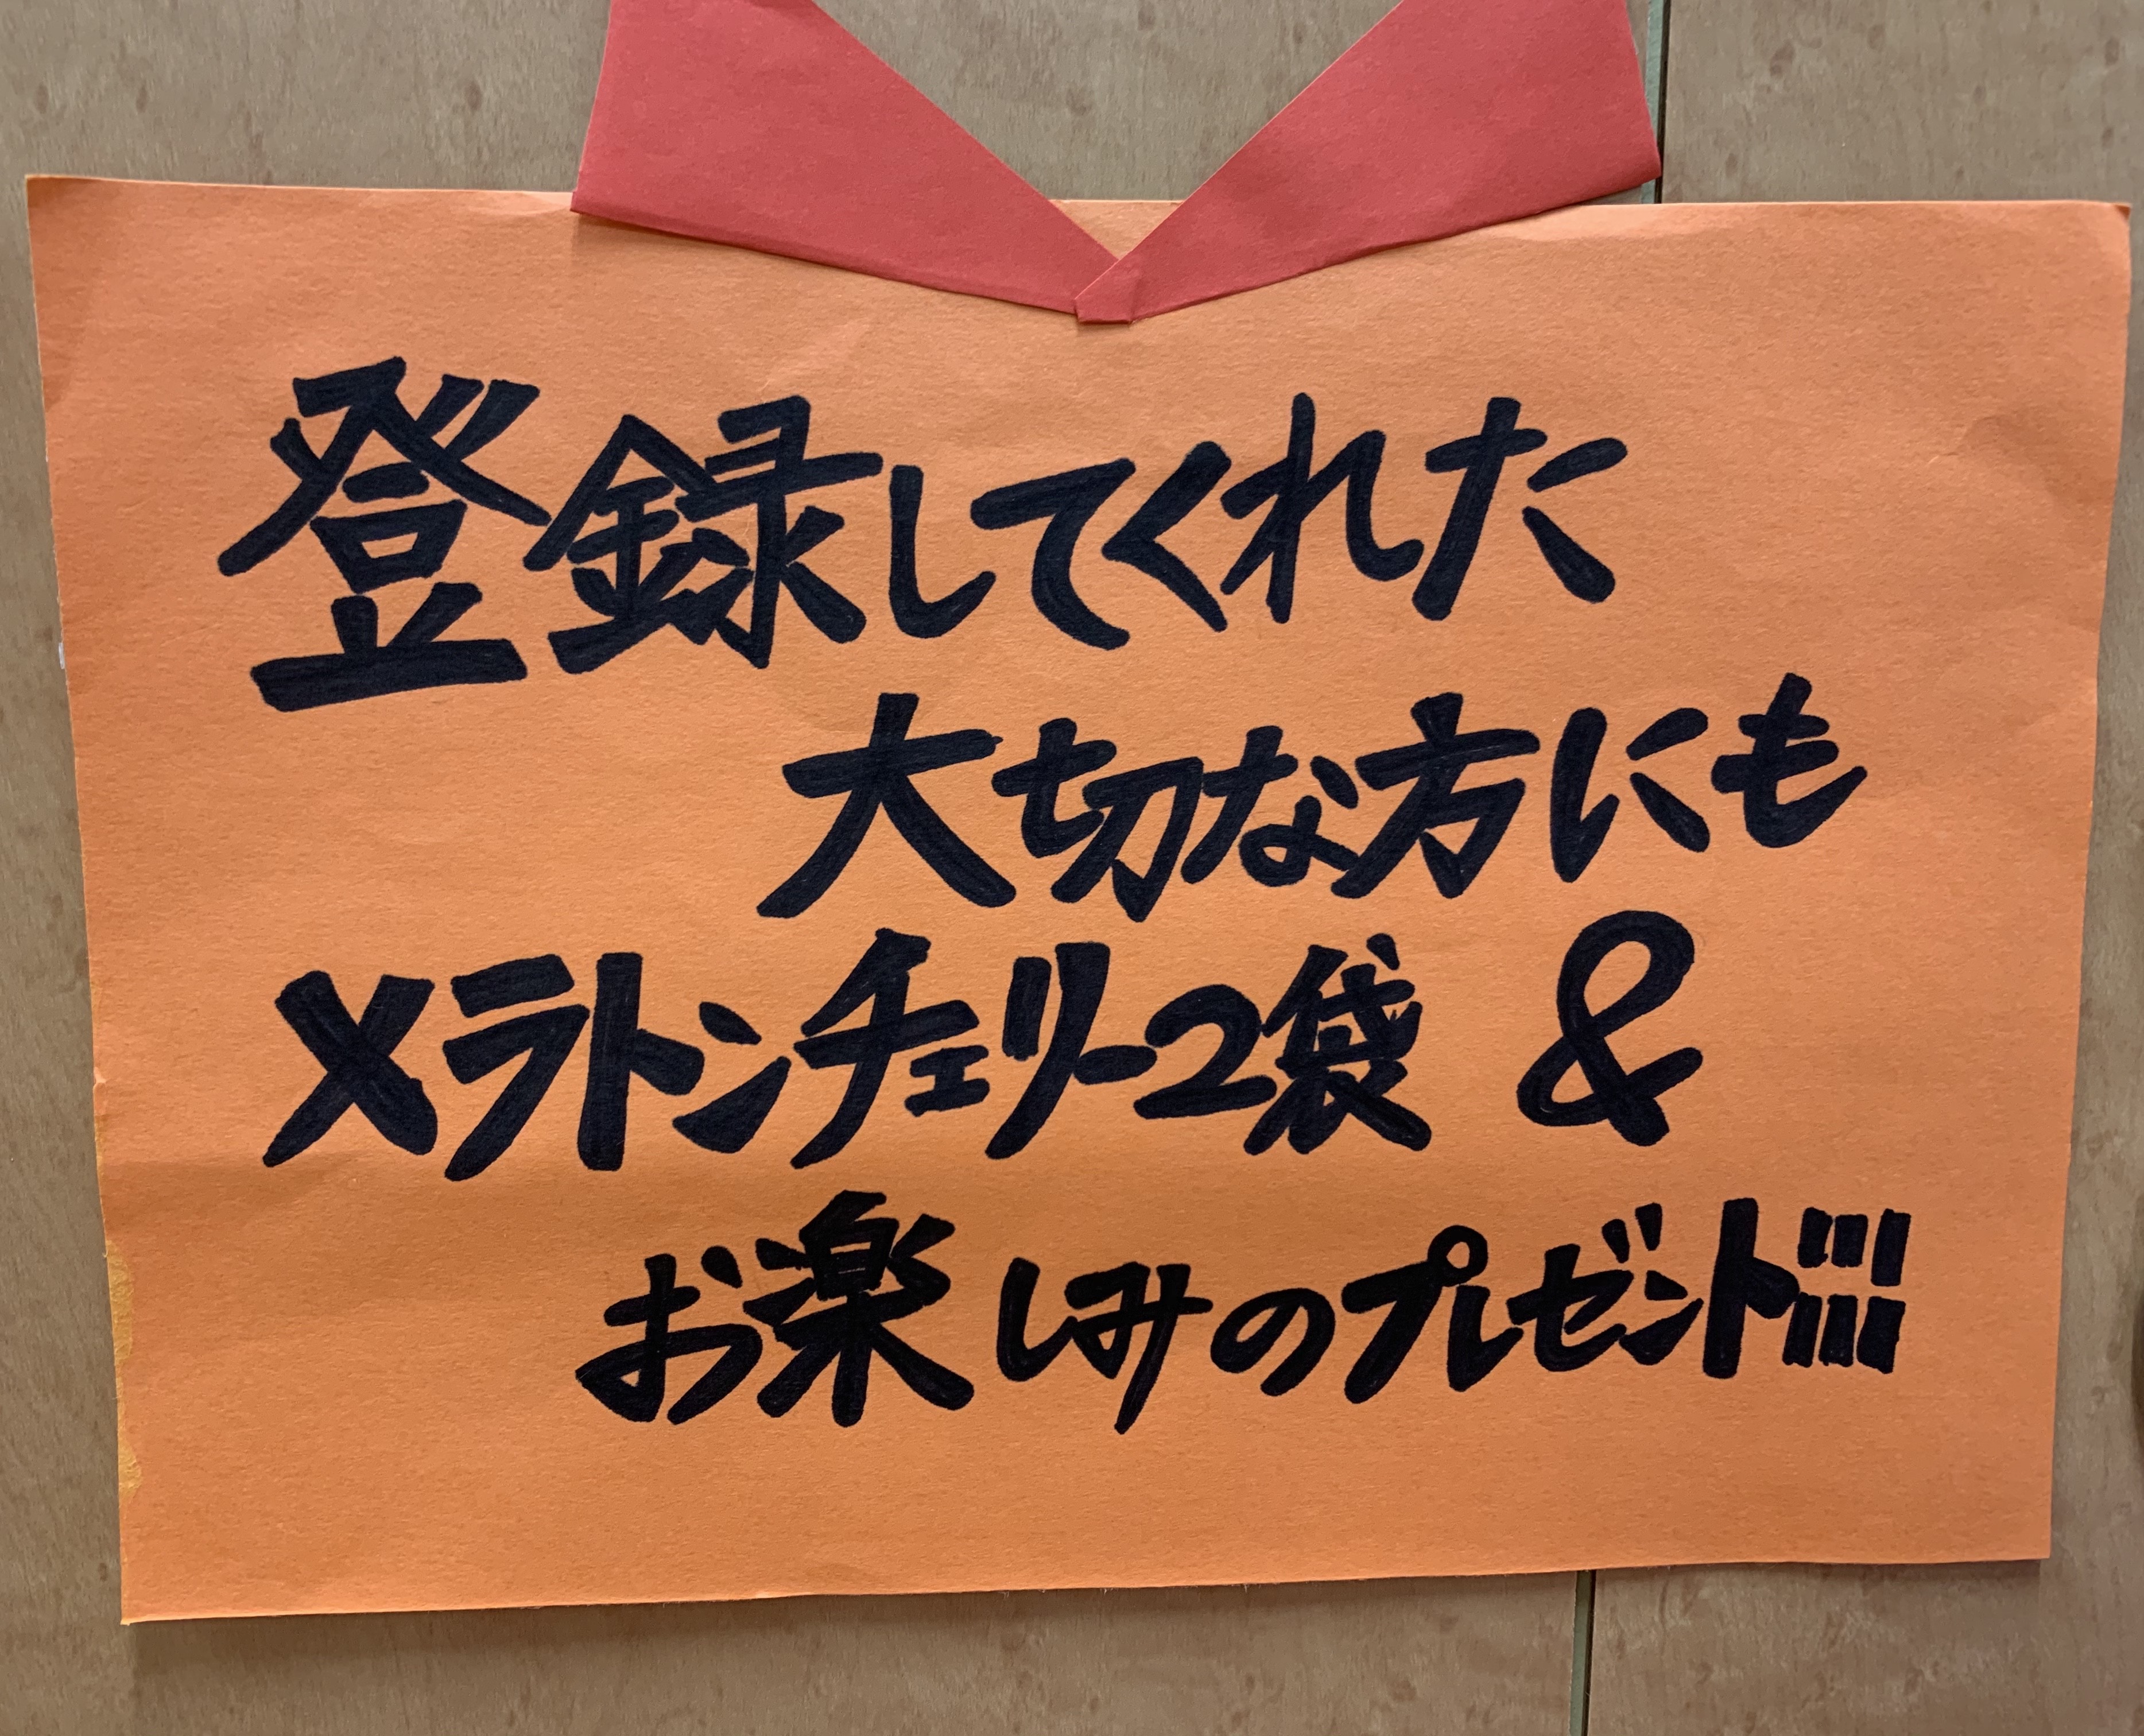 登録してくれた
大切な方にも
メラトンチェリー2袋 &
お楽しみのプレゼント!!!